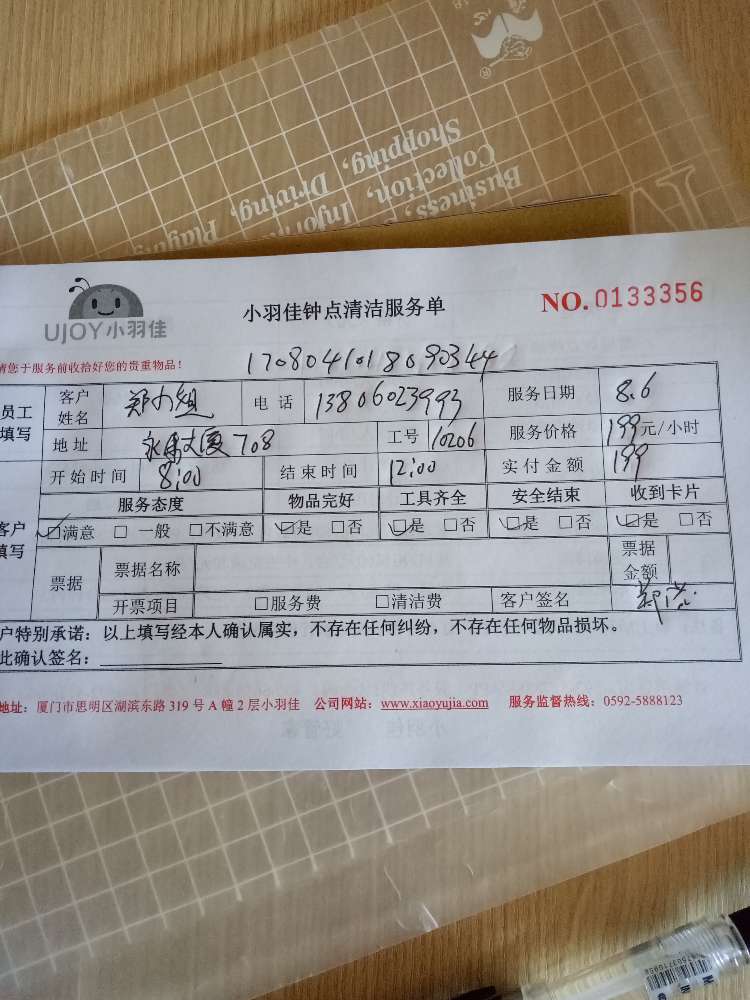 Shopping,
Collection,
Driving,
Business,
Playing
UJOY小羽佳
小羽佳钟点清洁服务单
NO. 0133356
请您于服务前收拾好您的贵重物品！
员工填写 客户姓名 电话 13806023993 服务日期 8.6
地址 708 工号 10206 服务价格 199元/小时
开始时间 8:00 结束时间 12:00 实付金额 199
服务态度 物品完好 工具齐全 安全结束 收到卡片
客户填写 ☑满意 □一般 □不满意 ☑是 □否 ☑是 □否 ☑是 □否 ☑是 □否
票据 票据名称 票据金额
开票项目 □服务费 □清洁费 客户签名
户特别承诺：以上填写经本人确认属实，不存在任何纠纷，不存在任何物品损坏。
此确认签名：
地址：厦门市思明区湖滨东路 319 号 A 幢 2 层小羽佳 公司网站：www.xiaoyujia.com 服务监督热线：0592-5888123